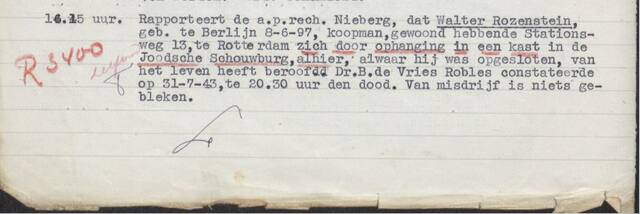 14.15 uur. Rapporteert de a.p.rech. Nieberg, dat Walter Rozenstein,
geb. te Berlijn 8-6-97, koopman,gewoond hebbende Stations-
weg 13,te Rotterdam zich door ophanging in een kast in de
R 3400 Joodsche Schouwburg,alhier, alwaar hij was opgesloten, van
het leven heeft beroofd Dr.B.de Vries Robles constateerde
op 31-7-43,te 20.30 uur den dood. Van misdrijf is niets ge-
bleken.